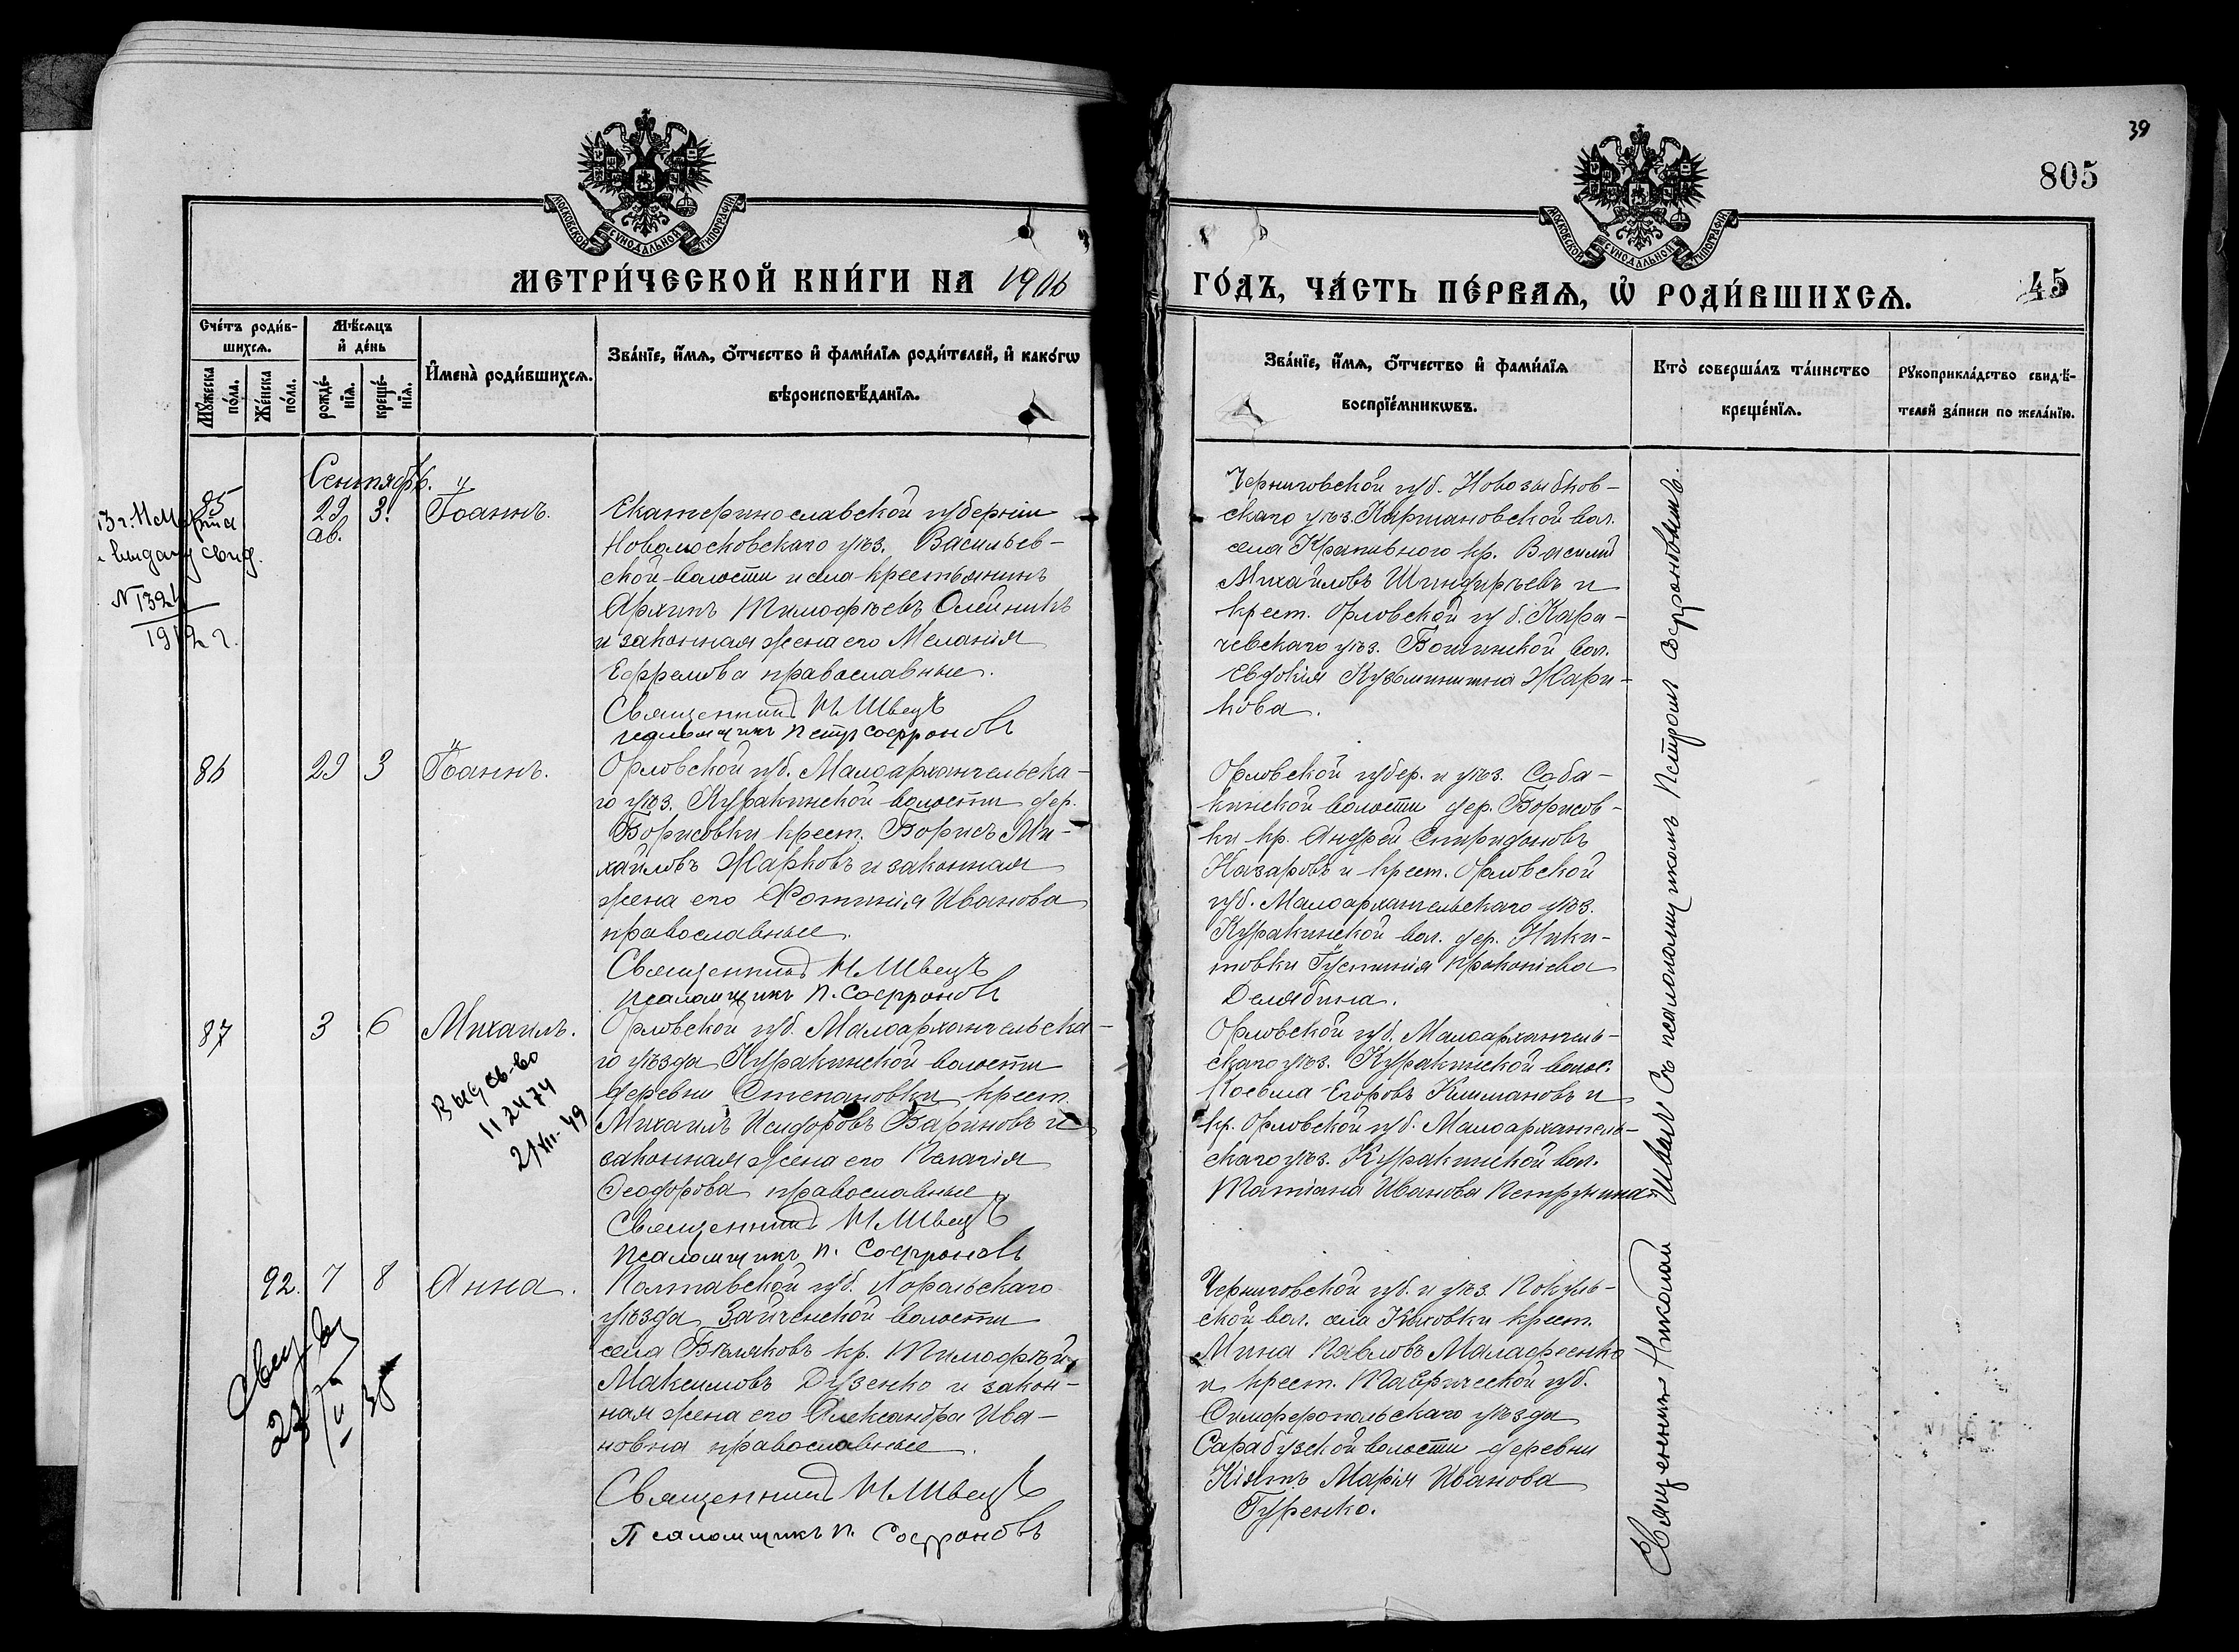 39
805
МОСКОВСКОЙ СѴНОДАЛЬНОЙ ТИПОГРАФІИ
МОСКОВСКОЙ СѴНОДАЛЬНОЙ ТИПОГРАФІИ
МЕТРИ́ЧЕСКОЙ КНИ́ГИ НА 1906
ГО́ДЪ, ЧА́СТЬ ПЕ́РВАѦ, Ѡ РОДИ́ВШИХСѦ.
45
Сче́тъ роди́в-
шихсѧ.
Мꙋ́жеска по́ла.
Же́нска по́ла.
Мѣ́сѧцъ
и҆ де́нь
рожде́-
нїѧ.
креще́-
нїѧ.
И҆мена̀ роди́вшихсѧ.
Зва́нїе, и҆́мѧ, ѻ҆́тчество и҆ фами́лїѧ роди́телей, и҆ како́гѡ
вѣроисповѣ́данїѧ.
Зва́нїе, и҆́мѧ, ѻ҆́тчество и҆ фами́лїѧ
воспрїе́мникѡвъ.
Кто̀ соверша́лъ та́инство
креще́нїѧ.
Рꙋкоприкла́дство свидѣ́-
телей за́писи по жела́нїю.
Сентябрь.
85
29
ав.
3.
Іоаннъ.
Екатеринославской губерніи
Новомосковскаго уѣз. Васильев-
ской волости и села крестьянинъ
Архипъ Тимофѣевъ Олейникъ
и законная жена его Меланія
Ефремова православные.
Священникъ Н. Швецъ
псаломщикъ Петръ Софроновъ
Черниговской губ. Новозыбков-
скаго уѣз. Каримановской вол.
села Крапивного кр. Василій
Михайловъ Шиндирѣевъ и
крест. Орловской губ. Кара-
чевскаго уѣз. Бошинской вол.
Евдокія Кузьминишна Жари-
кова.
выдану свид.
N 1324
1912 г.
86
29
3
Іоаннъ.
Орловской губ. Малоархангельска-
го уѣз. Куракинской волости дер.
Борисовки крест. Борисъ Ми-
хайловъ Жарковъ и законная
жена его Фотинія Иванова
православные.
Священникъ Н. Швецъ
псаломщикъ П. Софроновъ
Орловской губер. и уѣз. Соба-
кинской волости дер. Борисов-
ки кр. Андрей Спиридоновъ
Назаровъ и крест. Орловской
губ. Малоархангельскаго уѣз.
Куракинской вол. дер. Ники-
товки Іустинія Прокопіева
Делябина.
87
3
6
Михаилъ.
Выд св-во
II 2474
2/XII-49
Орловской губ. Малоархангельска-
го уѣзда Куракинской волости
деревни Степановки крест.
Михаилъ Исидоровъ Вариновъ и
законная жена его Пелагія
Ѳеодорова православные
Священникъ Н. Швецъ
псаломщикъ П. Софроновъ
Орловской губ. Малоархангель-
скаго уѣз. Куракинской волос.
Косьма Егоровъ Климановъ и
кр. Орловской губ. Малоархангель-
скаго уѣз. Куракинской вол.
Татіана Иванова Петрунина.
92.
7
8
Анна.
Полтавской губ. Хорольскаго
уѣзда Зайченской волости
села Бѣляковъ кр. Тимофѣй
Максимовъ Дузенко и закон-
ная жена его Александра Ива-
новна православные.
Священникъ Н. Швецъ
Псаломщикъ П. Софроновъ
Черниговской губ. и уѣз. Покуль-
ской вол. села Кіяховки крест.
Мина Павловъ Малафеенко
и крест. Таврической губ.
Симферопольскаго уѣзда
Сарабузской волости деревни
Кіятъ Марія Иванова
Гуренко.
Священникъ Николай Швецъ Съ псаломщикомъ Петромъ Софроновымъ.